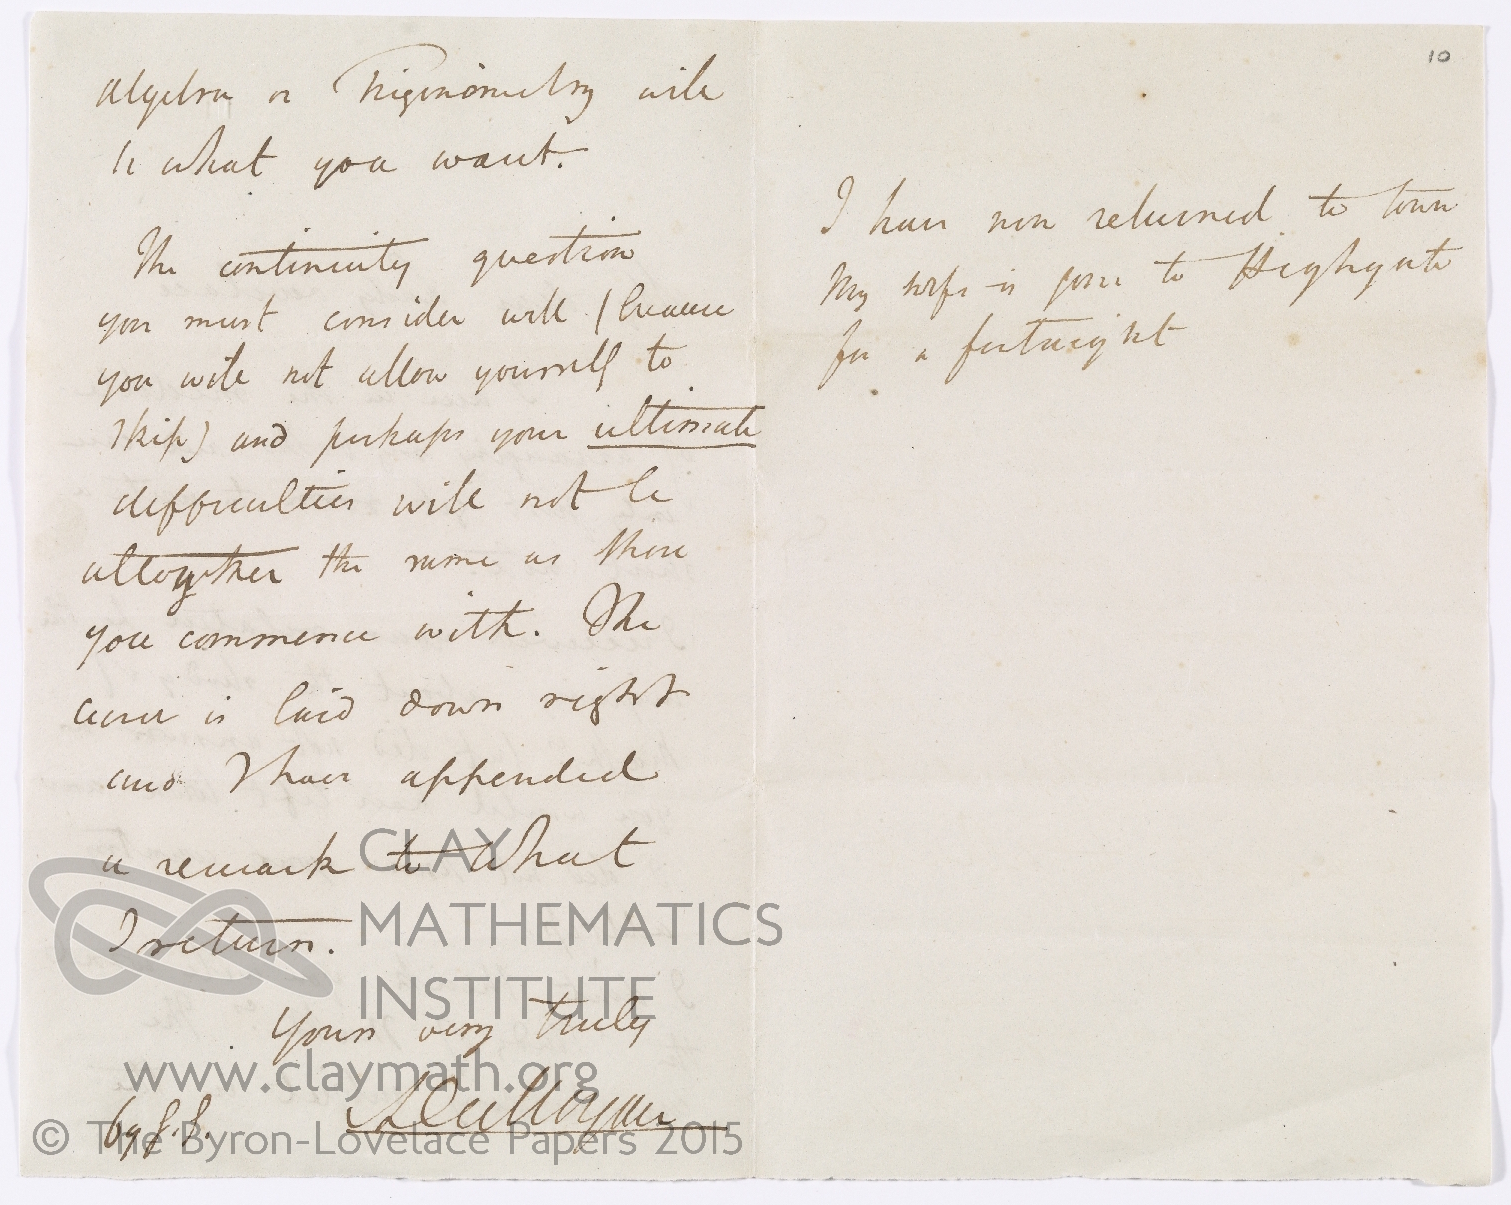 algebra or Trigonometry will
be what you want.
The continuity question
you must consider well (because
you will not allow yourself to
skip) and perhaps your ultimate
difficulties will not be
altogether the same as those
you commence with. The
curve is laid down right
and I have appended
a remark to what
I return.
Yours very truly
ADeMorgan
69 G.S.
10
I have now returned to town
My wife is gone to Highgate
for a fortnight
CLAY
MATHEMATICS
INSTITUTE
www.claymath.org
© The Byron-Lovelace Papers 2015